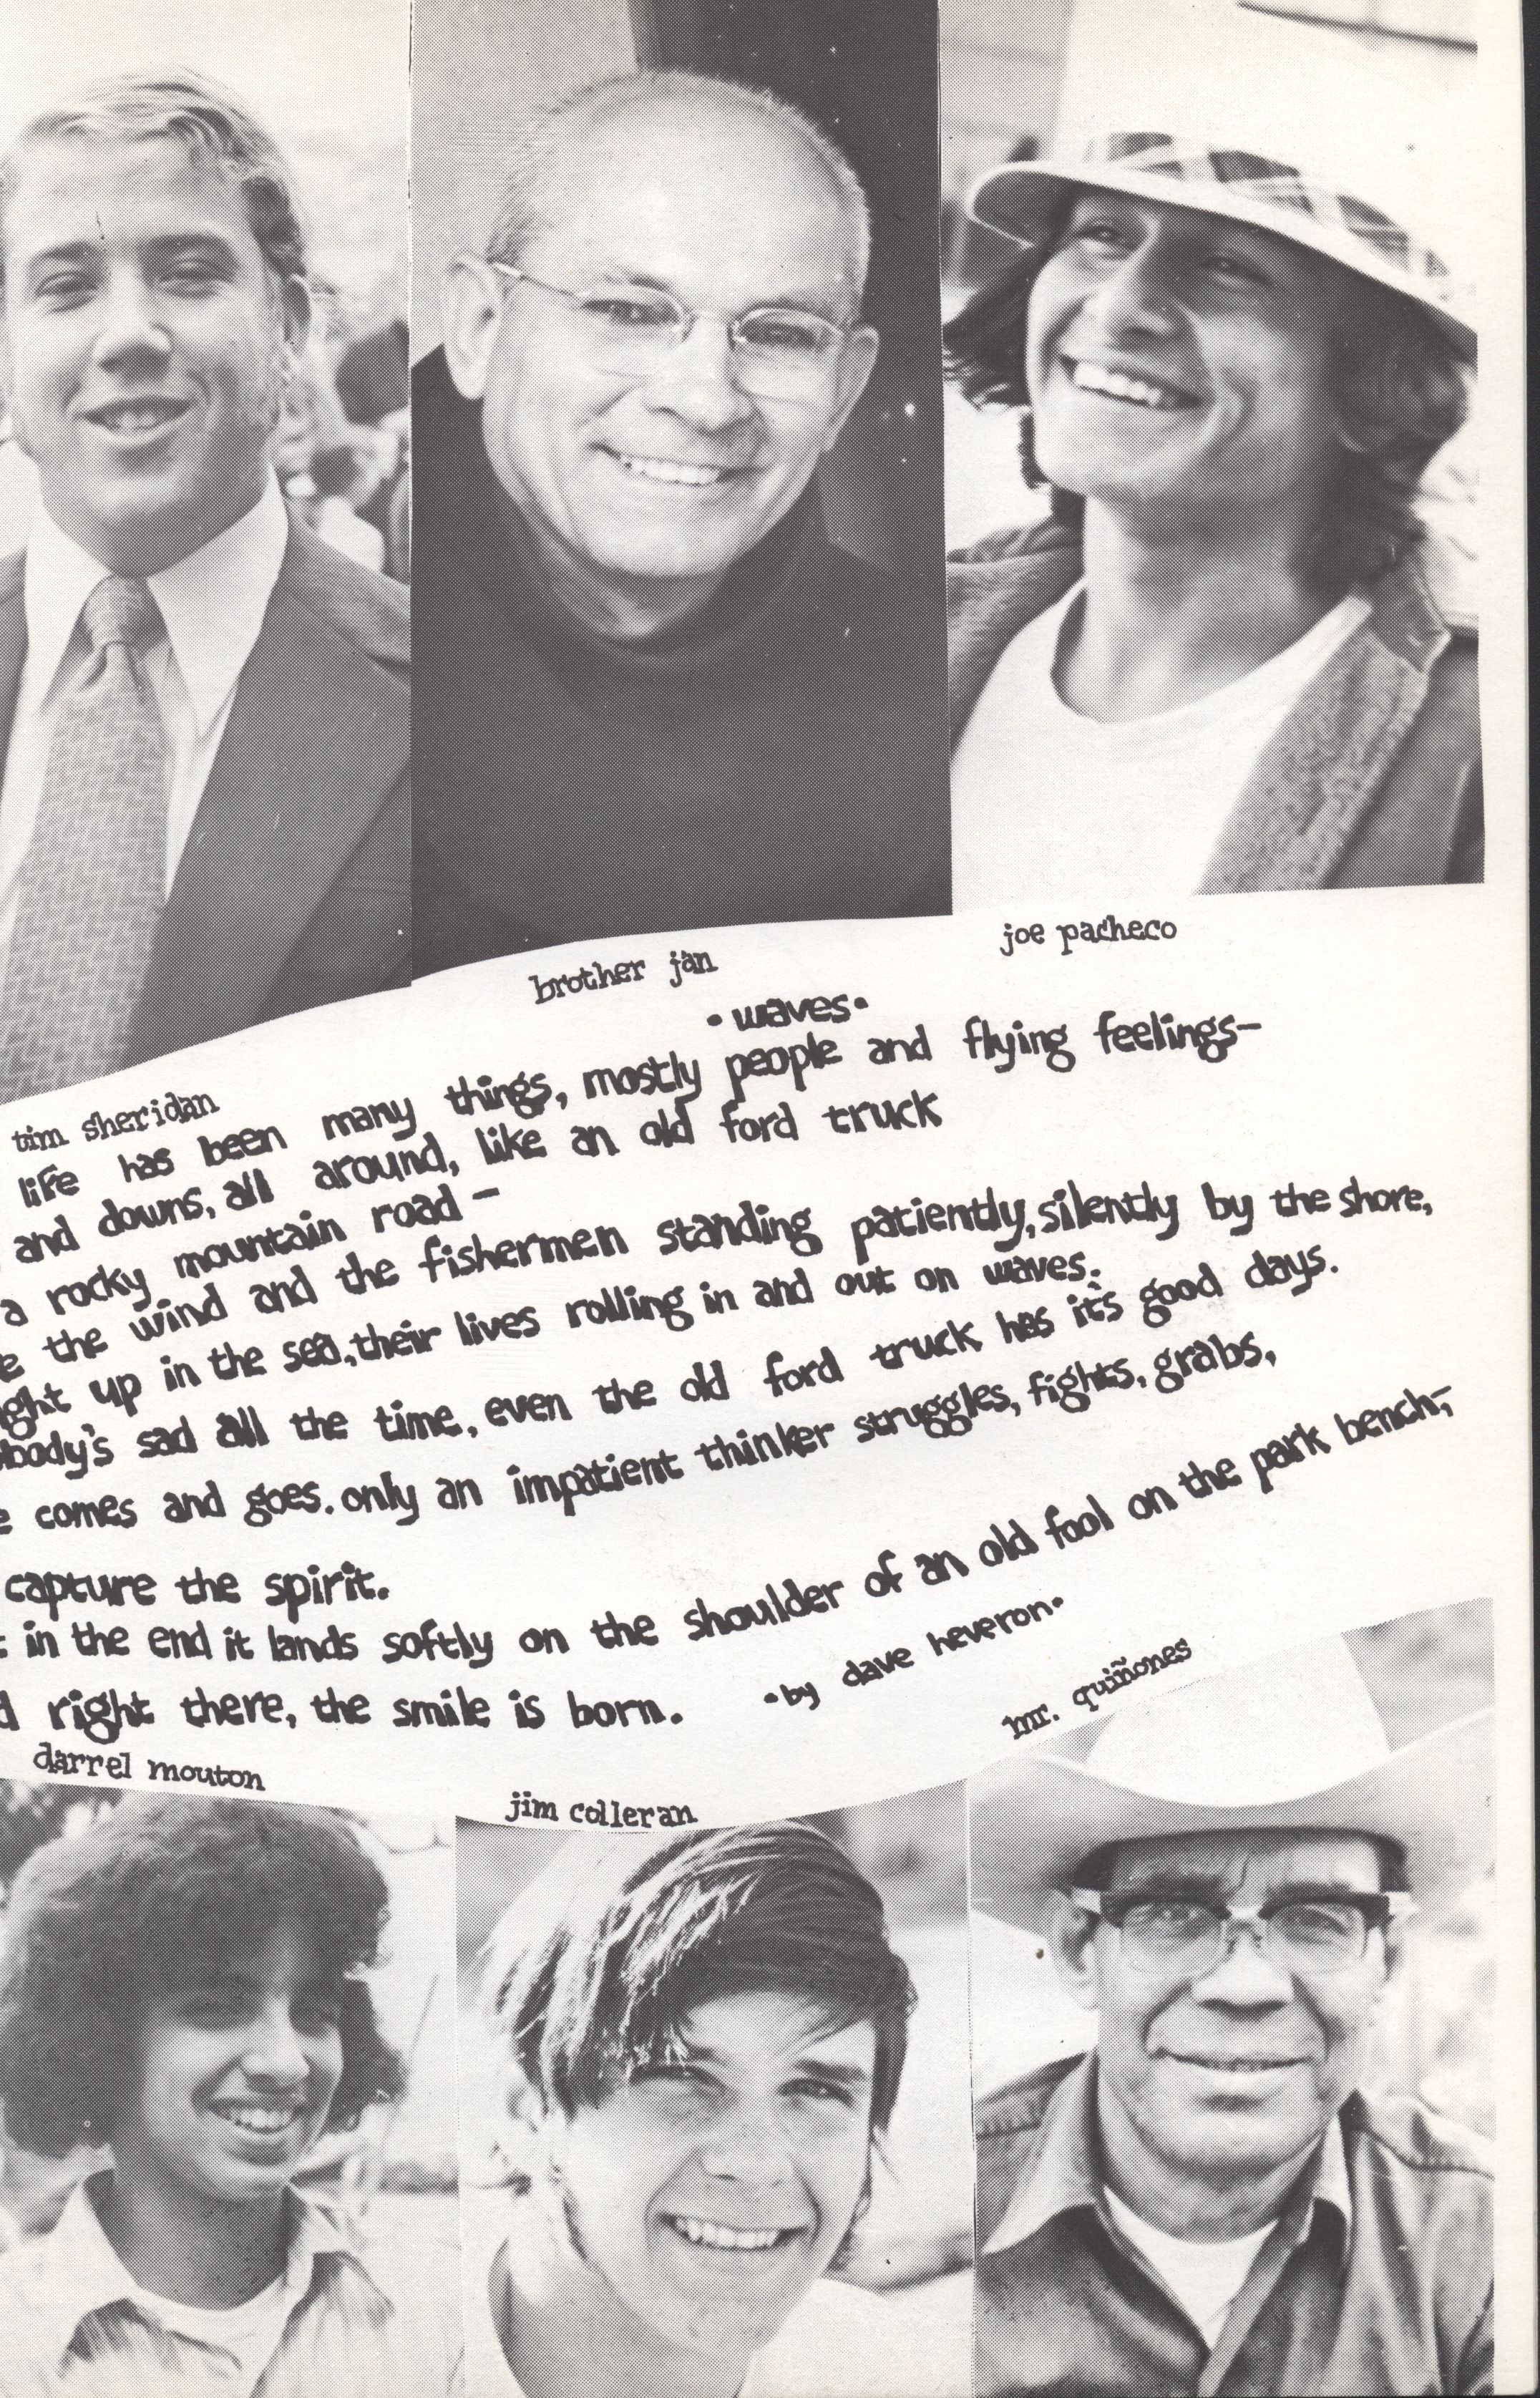 joe pacheco
brother jan
tim sheridan
• waves •
life has been many things, mostly people and flying feelings—
and downs, all around, like an old ford truck
a rocky mountain road —
e the wind and the fishermen standing patiently, silently by the shore,
ght up in the sea, their lives rolling in and out on waves.
body's sad all the time, even the old ford truck has it's good days.
e comes and goes. only an impatient thinker struggles, fights, grabs,
capture the spirit.
in the end it lands softly on the shoulder of an old fool on the park bench,—
d right there, the smile is born.
• by dave heveron •
mr. quiñones
darrel mouton
jim colleran